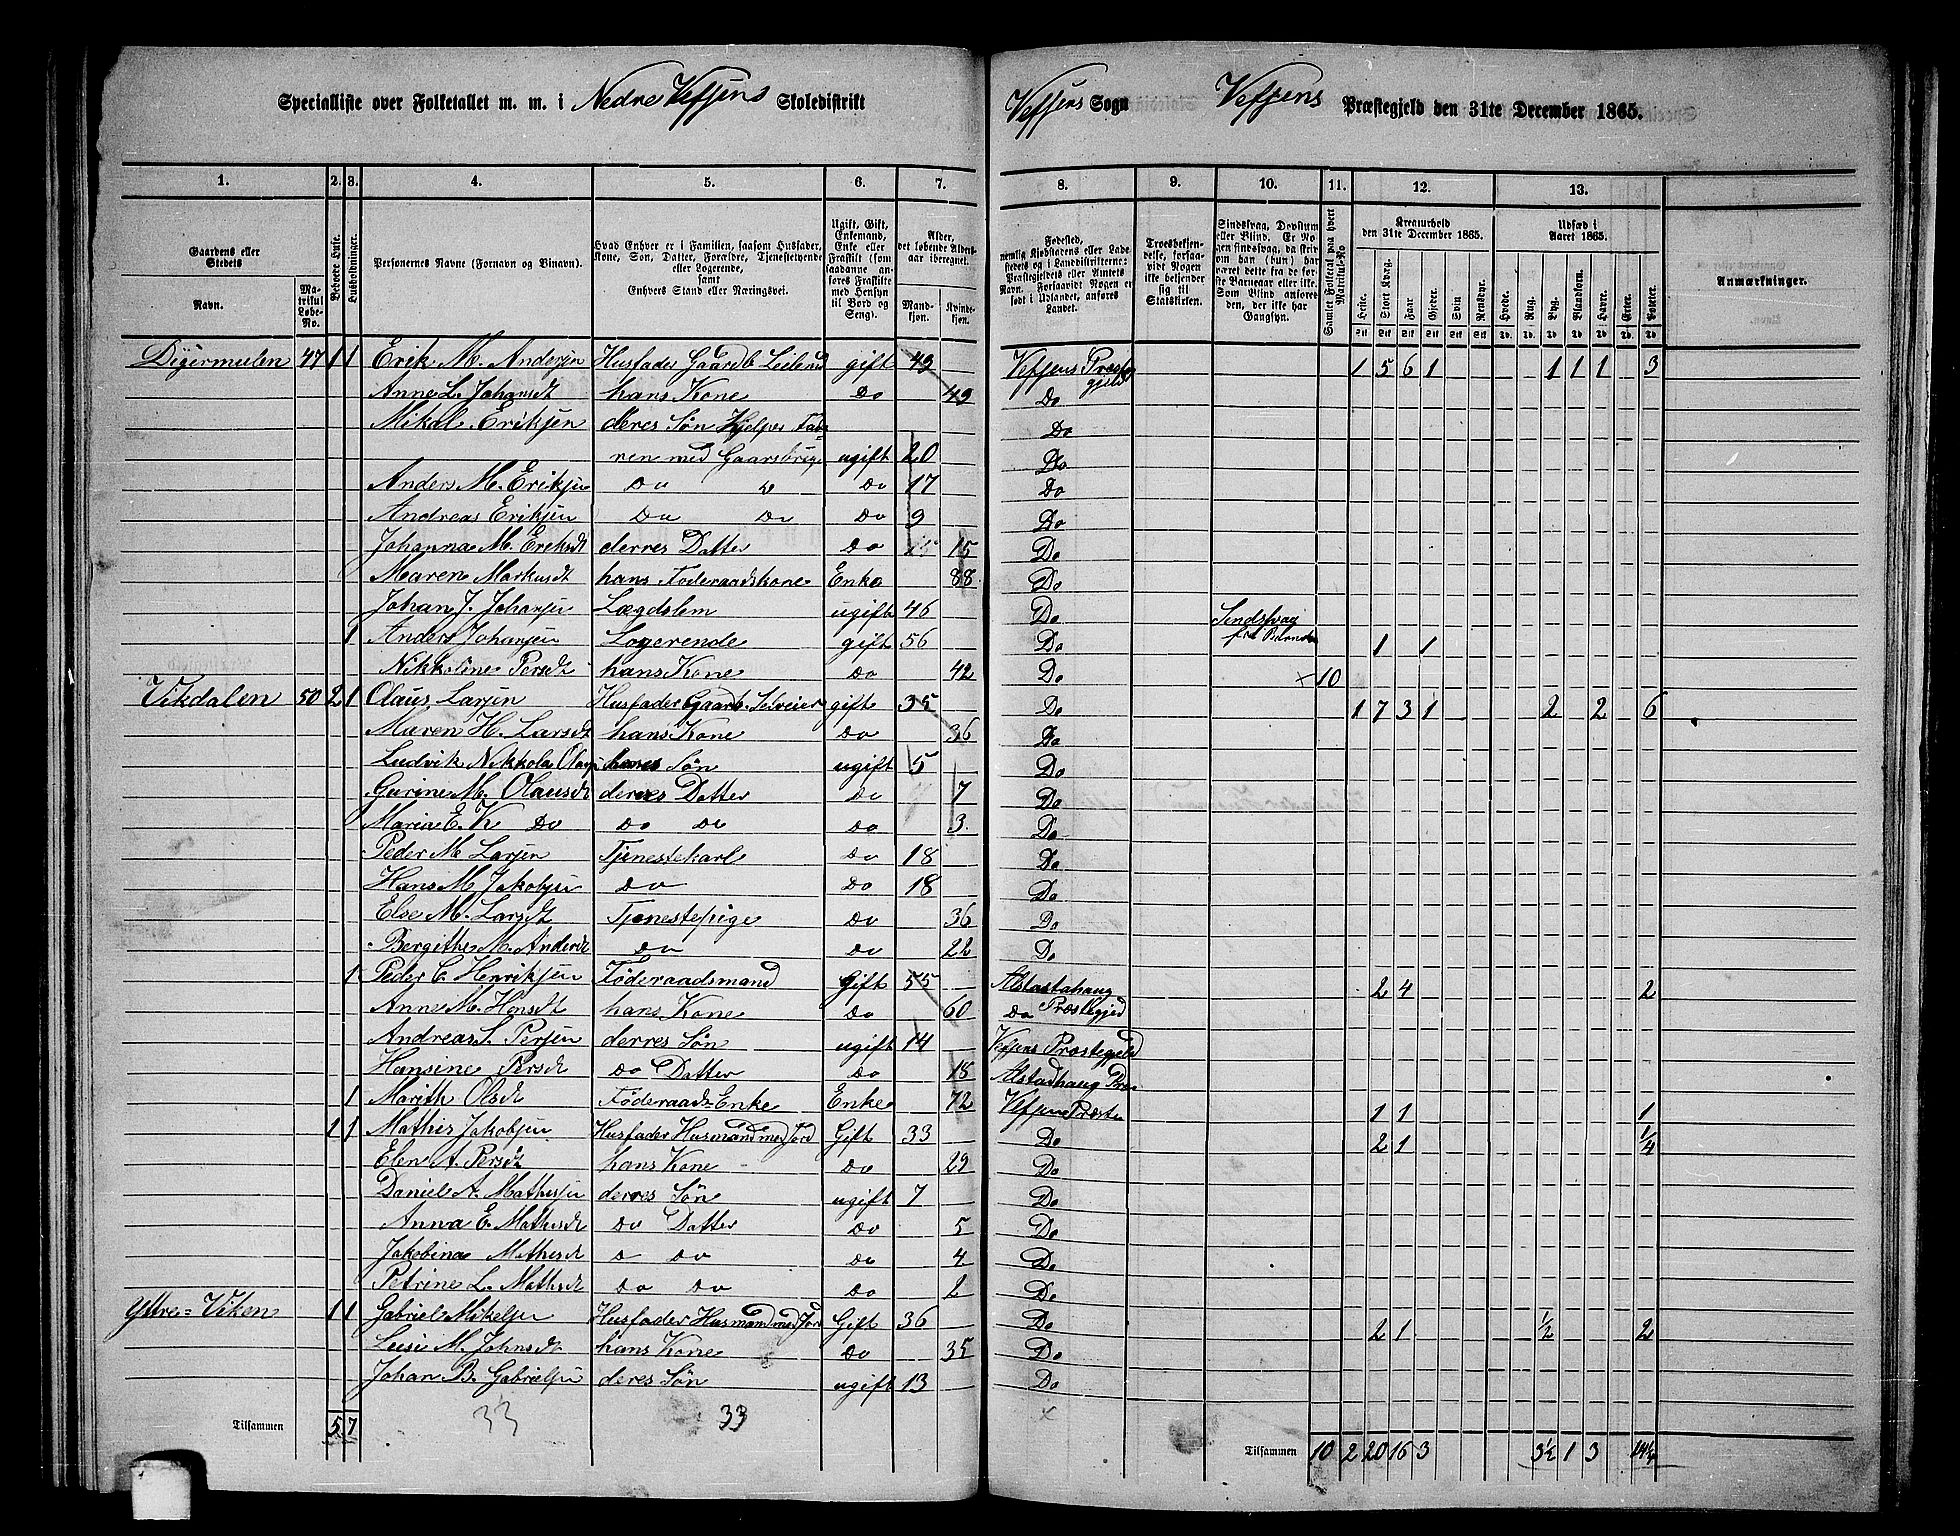 Specialliste over Folketallet m. m. i Nedre Vefsens Skoledistrikt Vefsens Sogn Vefsens Præstegjeld den 31te December 1865.
1. 2. 3. 4. 5. 6. 7. 8. 9. 10. 11. 12. 13.
Gaardens eller Stedets
Navn. Matrikul Løbe-No.
Beboede Huse.
Husholdninger.
Personernes Navne (Fornavn og Binavn).
Hvad Enhver er i Familien, saasom Husfader, Kone, Søn, Datter, Forældre, Tjenestetyende eller Logerende, samt Enhvers Stand eller Næringsvei.
Ugift, Gift, Enkemand, Enke eller Fraskilt (som saadanne anføres Fraskilte med Hensyn til Bord og Seng).
Alder, det løbende Aldersaar iberegnet.
Mandkjøn. Kvindekjøn.
Fødested,
Troesbekjendelse, forsaavidt Nogen ikke bekjender sig til Statskirken.
Sindssvag, Døvstum eller Blind.
Samlet Folketal paa hvert Matrikul-No
Kreaturhold den 31te December 1865.
Heste. Stort Kvæg. Faar. Gjeder. Svin Rensdyr.
Udsæd i Aaret 1865.
Hvede. Rug. Byg. Blandkorn. Havre. Erter. Poteter.
Anmærkninger.
Dyermeelen 47 1 1 Erik M. Andersen Husfader Gaardb Leilend gift 49 Vefsens Præstegjeld 1 5 6 1 1 1 1 3
Anne L. Johansdt hans Kone Do 49 Do
Mikal Eriksen deres Søn Hjelper Fad- Do
ren med Gaarsbruge ugift 20 Do
Anders M. Eriksen Do Do 17 Do
Andreas Eriksen Do Do Do 9 Do
Johanna M. Eriksdt derres Datter Do 15 Do
Maren Markusdt hans Føderaadskone Enke 88 Do
Johan J. Johansen Lægdslem ugift 46 Do Sindsvag
1 Anders Johansen Logerende gift 56 Do 1 1
Nikkoline Persdt hans Kone Do 42 Do × 10
Vikdalen 50 2 1 Olaus Larsen Husfader Gaardb. Selveier gift 35 Do 1 7 3 1 2 2 6
Maren H. Larsdt hans Kone Do 36 Do
Ludvik Nikkolai Olaus Søn ugift 5 Do
Gurine M. Olausdt derres Datter Do 7 Do
Maria E. K Do Do Do Do 3. Do
Peder M Larsen Tjenestekarl Do 18 Do
Hans M Jakobsen Do Do 18 Do
Else M. Larsdt Tjenestepige Do 36 Do
Bergithe M. Andersdt Do Do 22 Do
1 Peder C. Henriksen Føderaadsmand Gift 75 Alstahaug 2 4 2
Anne M. Hansdt hans Kone Do 60 Do Præstegjed
Andreas S. Persen derres Søn ugift 14 Vefsens Præstegjeld
Hansine Persdt Do Datter Do 18 Alstadhaug Præs
1 Marith Olsdt Føderaads-Enke Enke 72 Vefsens Præste 1 1 1
1 1 Mathis Jakobsen Husfader Husmand med Jord Gift 33 Do 2 1 1/4
Elen A. Persdt hans Kone Do 29 Do
Daniel A. Mathisen derres Søn ugift 7 Do
Anna E. Mathisdt Do Datter Do 5 Do
Jakobina Mathisdt D Do Do 4 Do
Petrine L. Mathisdt Do Do Do 2 Do
Yttre-Viken 1 1 Gabriel Mikelsen Husfader Husmand med Jord Gift 36 Do 2 1 1/2 2
Luise M. Johnsdt hans Kone Do 35 Do
Johan B. Gabrielsen deres Søn ugift 13 Do
Tilsammen 5 7 33 33 × Tilsammen 10 2 20 16 3 3½ 1 3 14¼